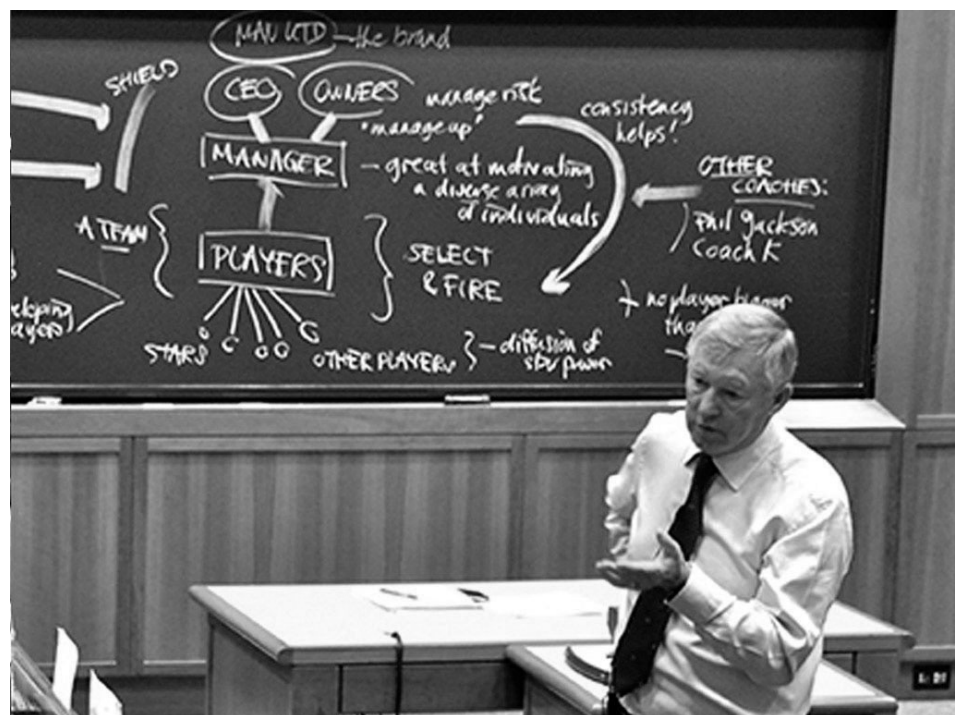 MAN UTD — the brand
SHIELD
CEO
OWNERS
manage risk
"manage up"
consistency
helps!
MANAGER
— great at motivating
a diverse array
of individuals
OTHER
COACHES:
Phil Jackson
Coach K
A TEAM
PLAYERS
SELECT
& FIRE
no player bigger
STARS
OTHER PLAYERS
— diffusion of
star power